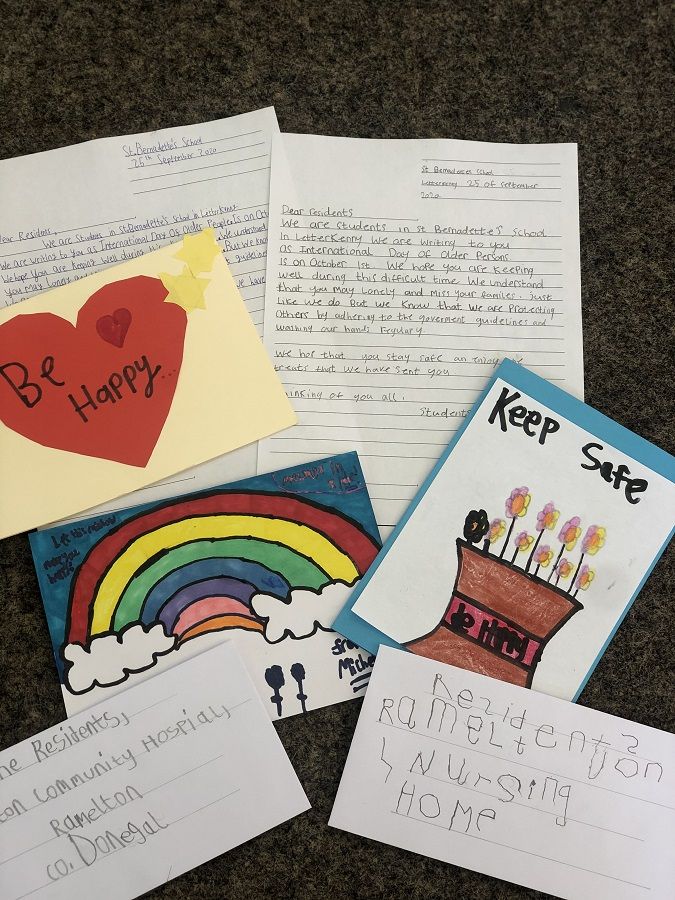 St. Bernadette's School
25th September 2020
Dear Residents,
We are Students in St Bernadette's School in Letterkenny
We are writing to you as International Day Of Older People Is on Oct
We hope you are Keeping Well during this
you May Lonely and
St Bernadettes School
Letterkenny 25 of September
2020
Dear residents
We are students in St Bernadette's School
In LetterKenny We are writing to you
as International Day Of Older Persons
is on October 1st. We hope you are Keeping
well during this difficult time. We understand
that you may Lonely and Miss your familes. Just
Like we do But we Know that we are Protecting
Others by adhering to the goverment guidelines and
washing our hands Regulary.
We hop that you stay safe an enjoy the
treats that We have sent you
thinking of you all.
Students
Be
Happy...
Keep Safe
Be Happy
Let this
from
Miche
The Residents,
Community Hospital,
Ramelton
co. Donegal
Rezidents
RAMELtON
NURSING
HOME